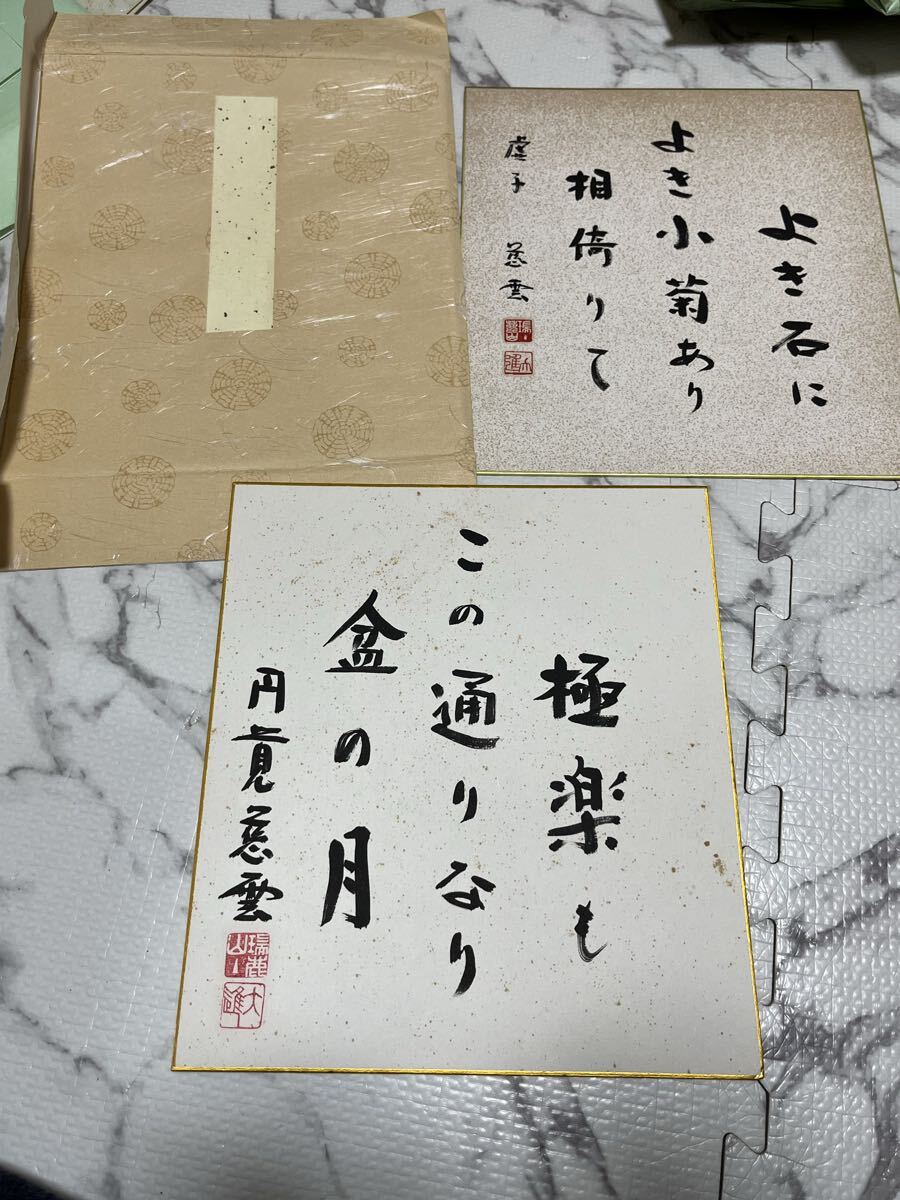 よき石に
よき小菊あり
相倚りて
虚子 慈雲
極楽も
この通りなり
盆の月
円覚慈雲
瑞鹿山
大進